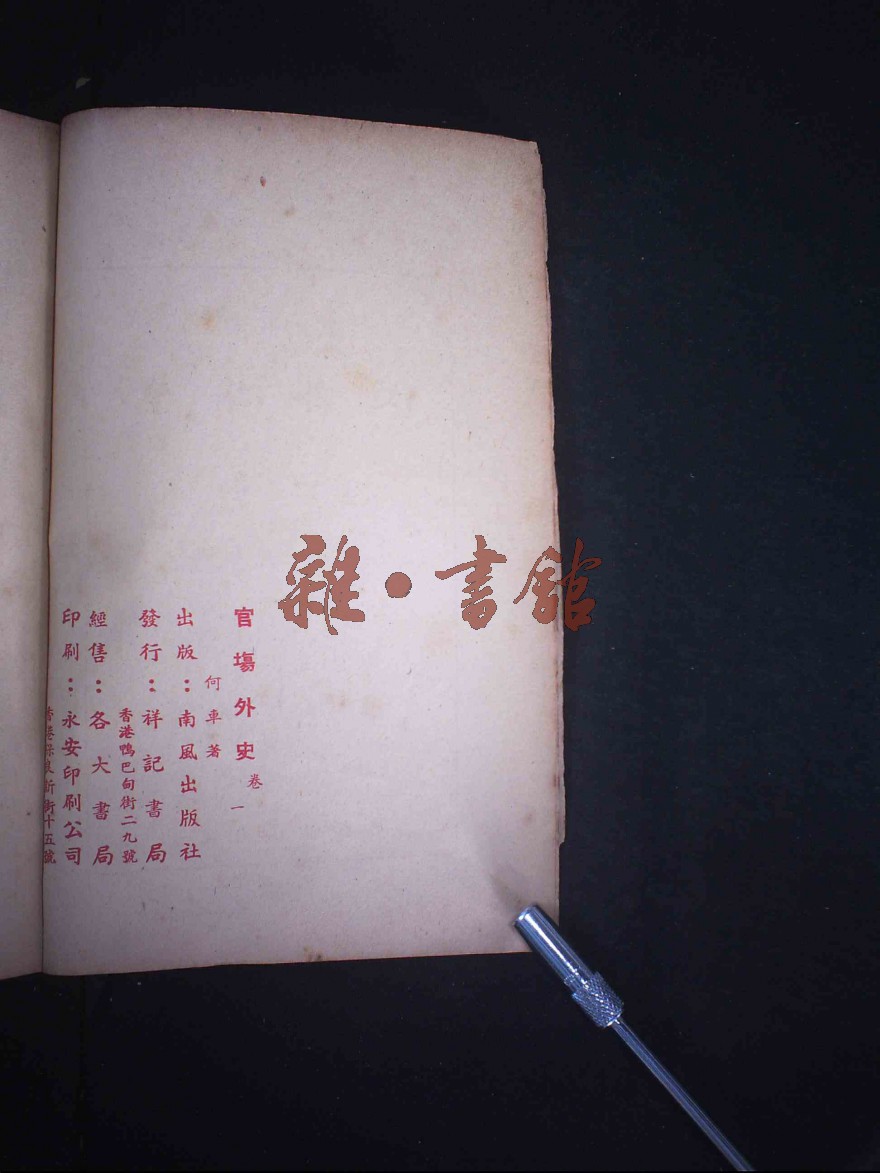 雜•書館
官場外史
卷一
何車著
出版：南風出版社
發行：祥記書局
香港鴨巴甸街二九號
經售：各大書局
印刷：永安印刷公司
香港保良新街十五號